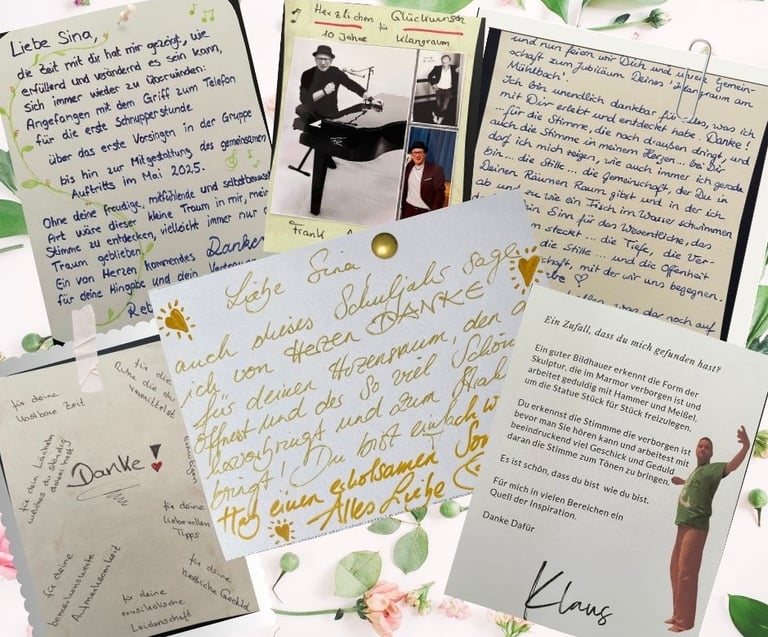 Liebe Sina,
die Zeit mit dir hat mir gezeigt, wie
erfüllend und verändernd es sein kann,
sich immer wieder zu überwinden:
Angefangen mit dem Griff zum Telefon
für die erste Schnupperstunde
über das erste Vorsingen in der Gruppe
bis hin zur Mitgestaltung des gemeinsamen
Auftritts im Mai 2025.
Ohne deine freudige, mitfühlende und selbstbewusste
Art wäre dieser kleine Traum in mir, mein
Stimme zu entdecken, vielleicht immer nur
Traum geblieben.
Ein von Herzen kommendes Danke
für deine Hingabe und dein Vertrauen
Herzlichen Glückwunsch
für
10 Jahre Klangraum
Frank
und nun feiern wir Dich und unsere Gemein-
schaft zum Jubiläum Deines Klangraum am
Mühlbach!
Ich bin unendlich dankbar für alles, was ich
mit Dir erlebt und entdeckt habe. Danke!
...für die Stimme, die nach draussen dringt, und
auch die Stimme in meinem Herzen... bei Dir
darf ich mich zeigen, wie auch immer ich gerade
bin... die Stille... die Gemeinschaft, der Du in
Deinen Räumen Raum gibst und in der ich
ab und zu wie ein Fisch im Wasser schwimmen
Sinn für das Wesentliche, das
steckt... die Tiefe, die Ver-
die Stille... und die Offenheit
schaft, mit der wir uns begegnen.
was da noch auf
Liebe Sina
auch dieses Schuljahr sage
ich von Herzen DANKE
für deinen Herzensraum, den
öffnest und der so viel Schön
hervorbringt und zum Strah
bringt! Du bist einfach w
Hab einen erholsamen Som
Alles Liebe
für deine
kostbare Zeit
für die
Ruhe die du
vermittelst
für dein Lächeln
welches du ständig
dabei hast
Danke!
für deine
liebevollen
Tipps
für deine
bemerkenswerte
Aufmerksamkeit
für deine
musikalische
Leidenschaft
für deine
herzliche Geduld
Ein Zufall, dass du mich gefunden hast?
Ein guter Bildhauer erkennt die Form der
Skulptur, die im Marmor verborgen ist und
arbeitet geduldig mit Hammer und Meißel,
um die Statue Stück für Stück freizulegen.
Du erkennst die Stimmme die verborgen ist
bevor man Sie hören kann und arbeitest mit
beeindruckend viel Geschick und Geduld
daran die Stimme zum Tönen zu bringen.
Es ist schön, dass du bist wie du bist.
Für mich in vielen Bereichen ein
Quell der Inspiration.
Danke Dafür
Klaus